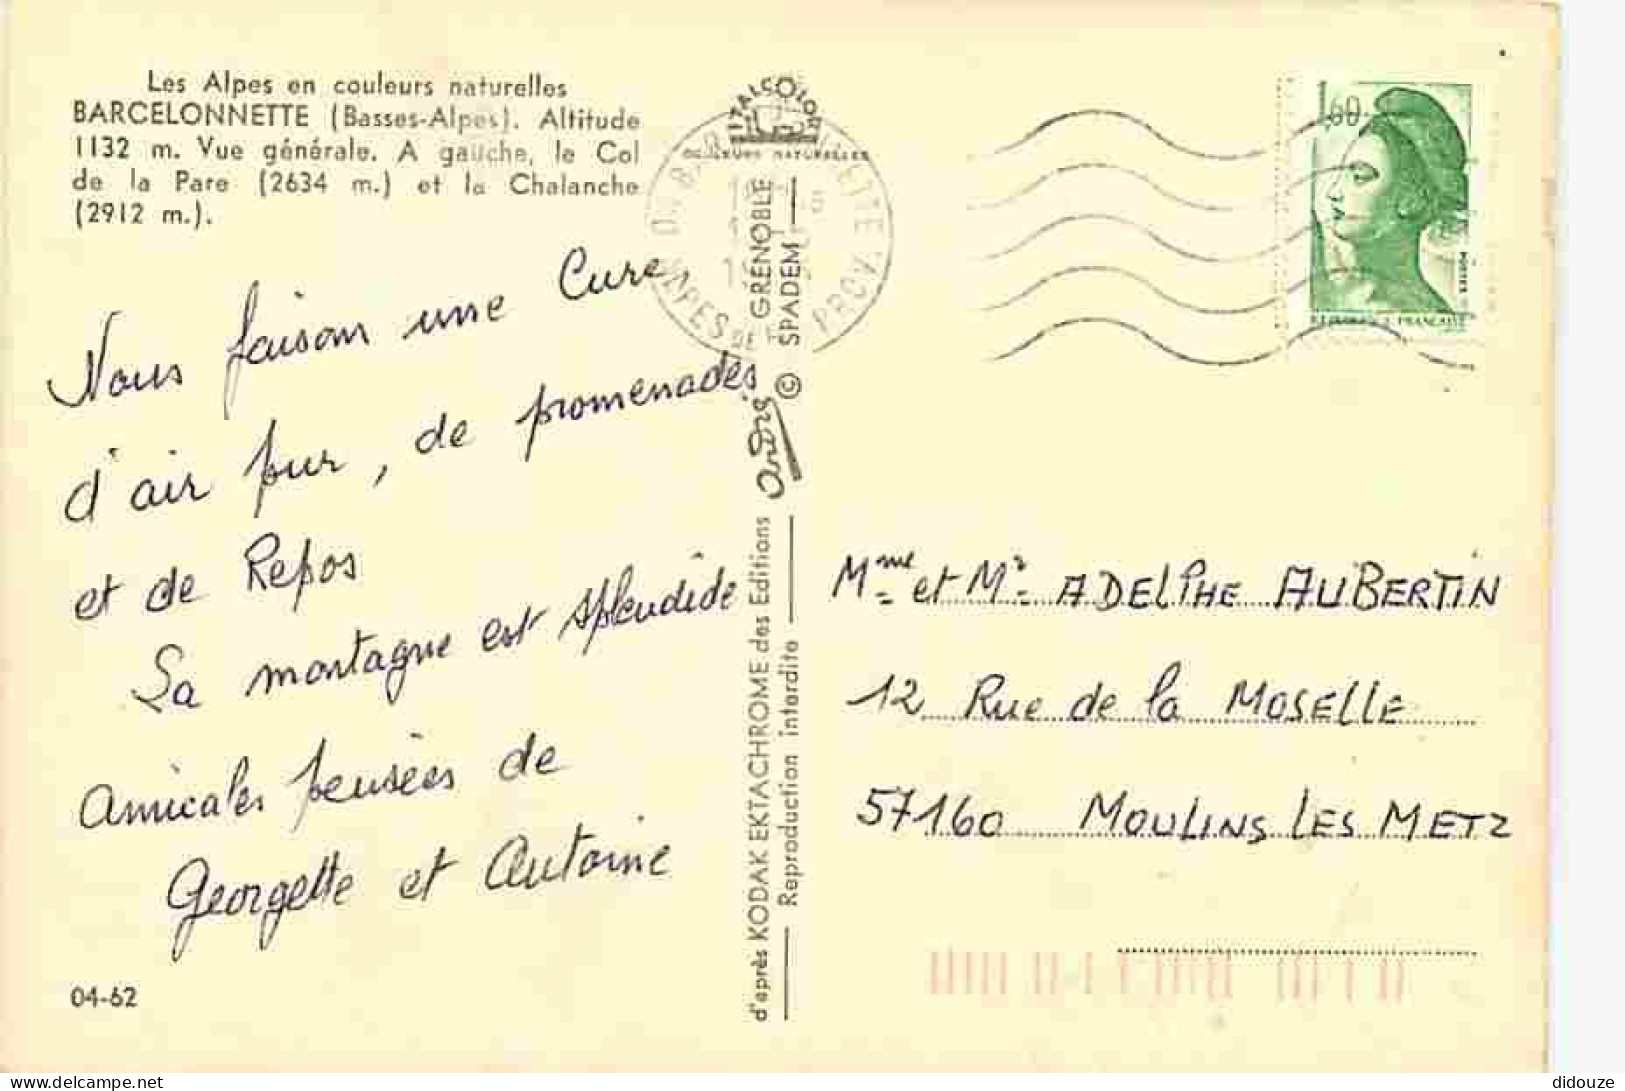 Les Alpes en couleurs naturelles
BARCELONNETTE (Basses-Alpes). Altitude
1132 m. Vue générale. A gauche, le Col
de la Pare (2634 m.) et la Chalanche
(2912 m.).
Nous faison une Cure,
d'air pur, de promenades
et de Repos
La montagne est splendide
Amicales pensées de
Georgette et Antoine
04-62
ITALCOLOR
COULEURS NATURELLES
GRENOBLE
© SPADEM
André
d'après KODAK EKTACHROME des Editions
Reproduction interdite
ALPES DE PROV.
1,60
POSTES
REPUBLIQUE FRANÇAISE
Mme et Mr ADELPHE AUBERTIN
12 Rue de la MOSELLE
57160 MOULINS LES METZ
delcampe.net
didouze